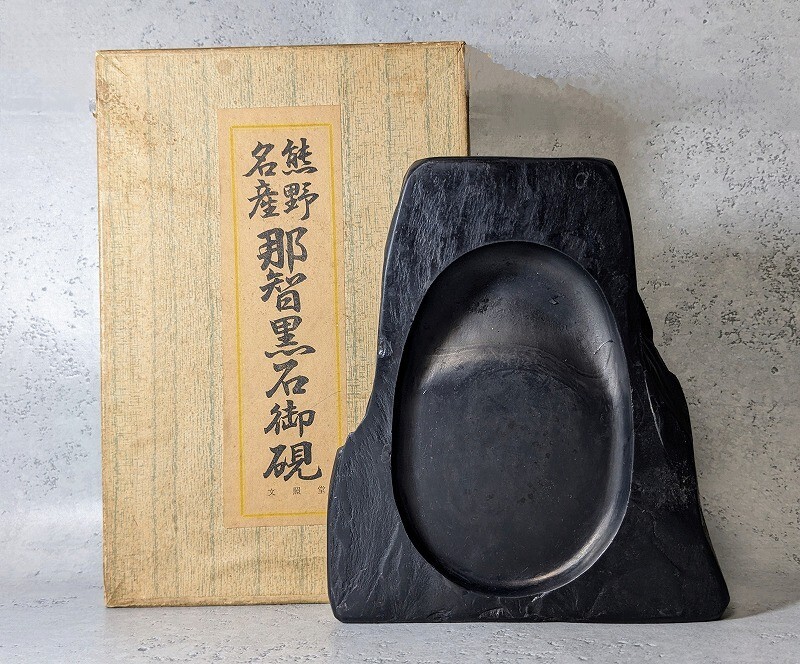 熊野
名産
那智黒石御硯
文照堂